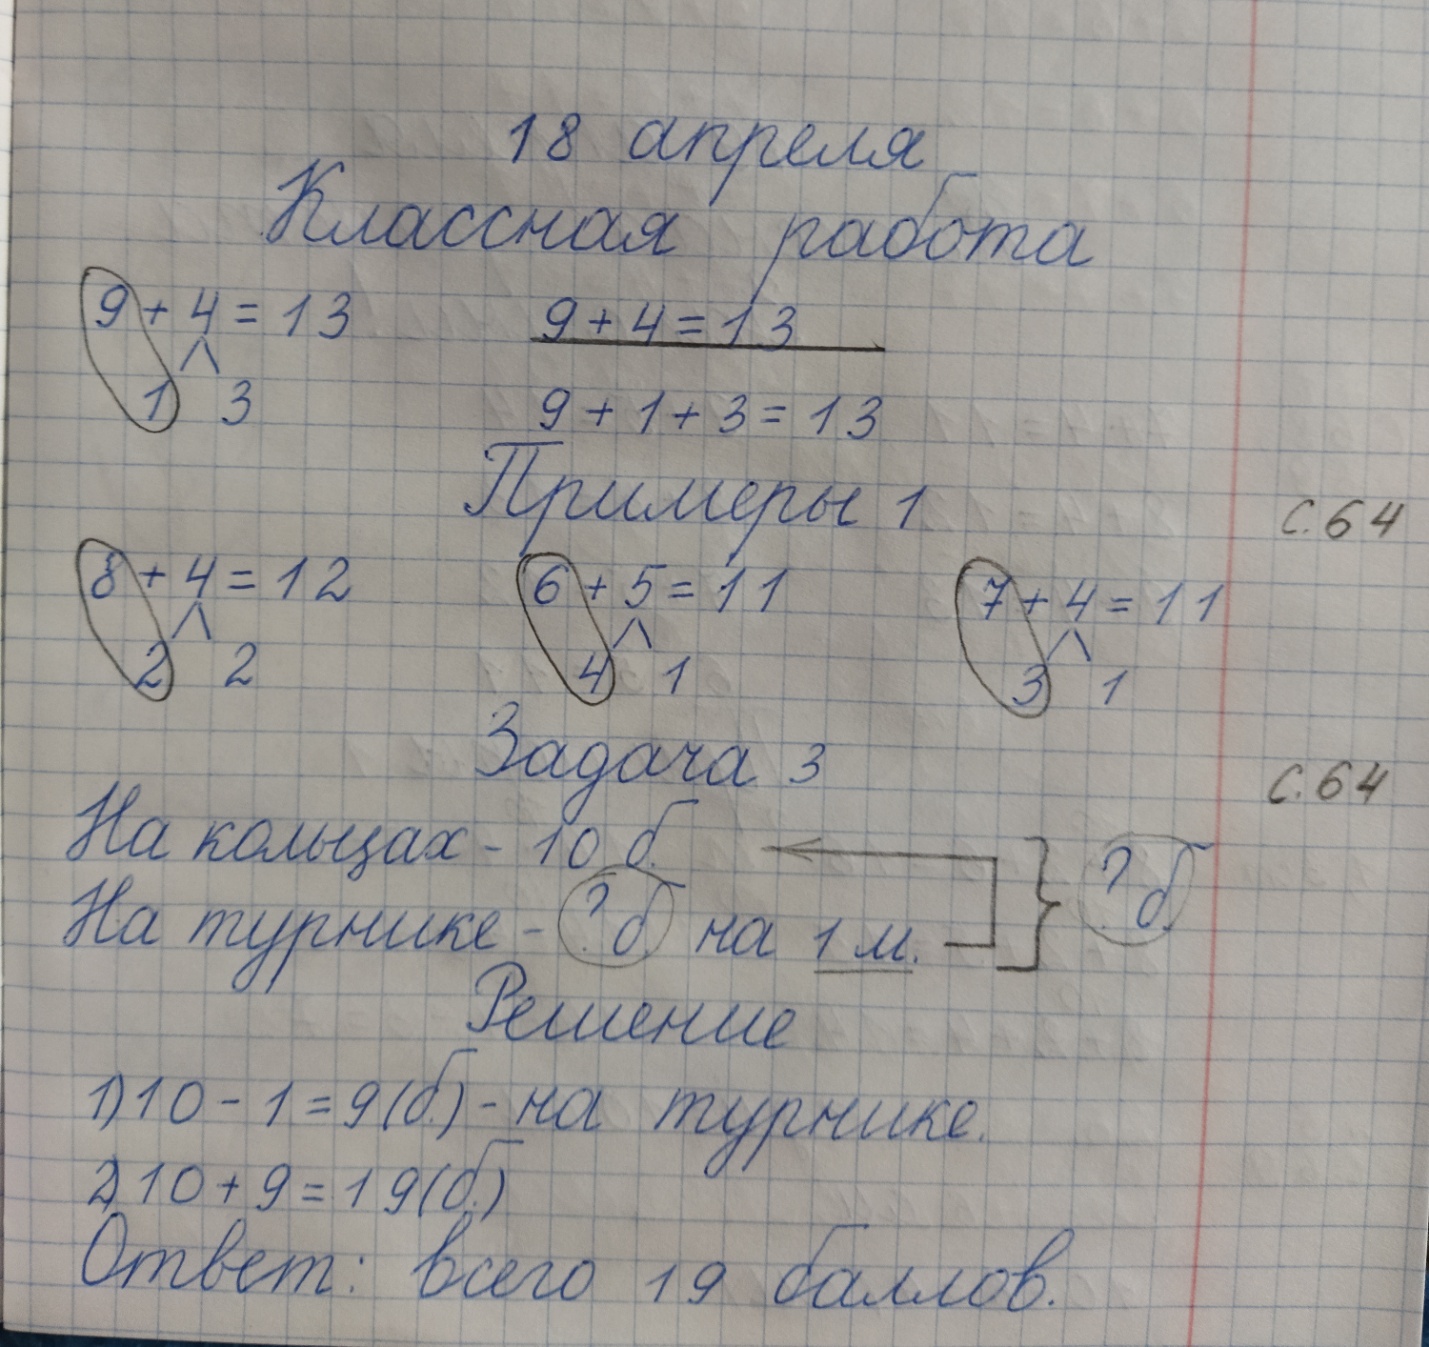 18 апреля
Классная работа
9 + 4 = 13 9 + 4 = 13
1 3 9 + 1 + 3 = 13
Примеры 1 с. 64
8 + 4 = 12 6 + 5 = 11 7 + 4 = 11
2 2 4 1 3 1
Задача 3 с. 64
На кольцах - 10 б.
На турнике - ? б. на 1 м. } ? б.
Решение
1) 10 - 1 = 9 (б.) - на турнике.
2) 10 + 9 = 19 (б.)
Ответ: всего 19 баллов.